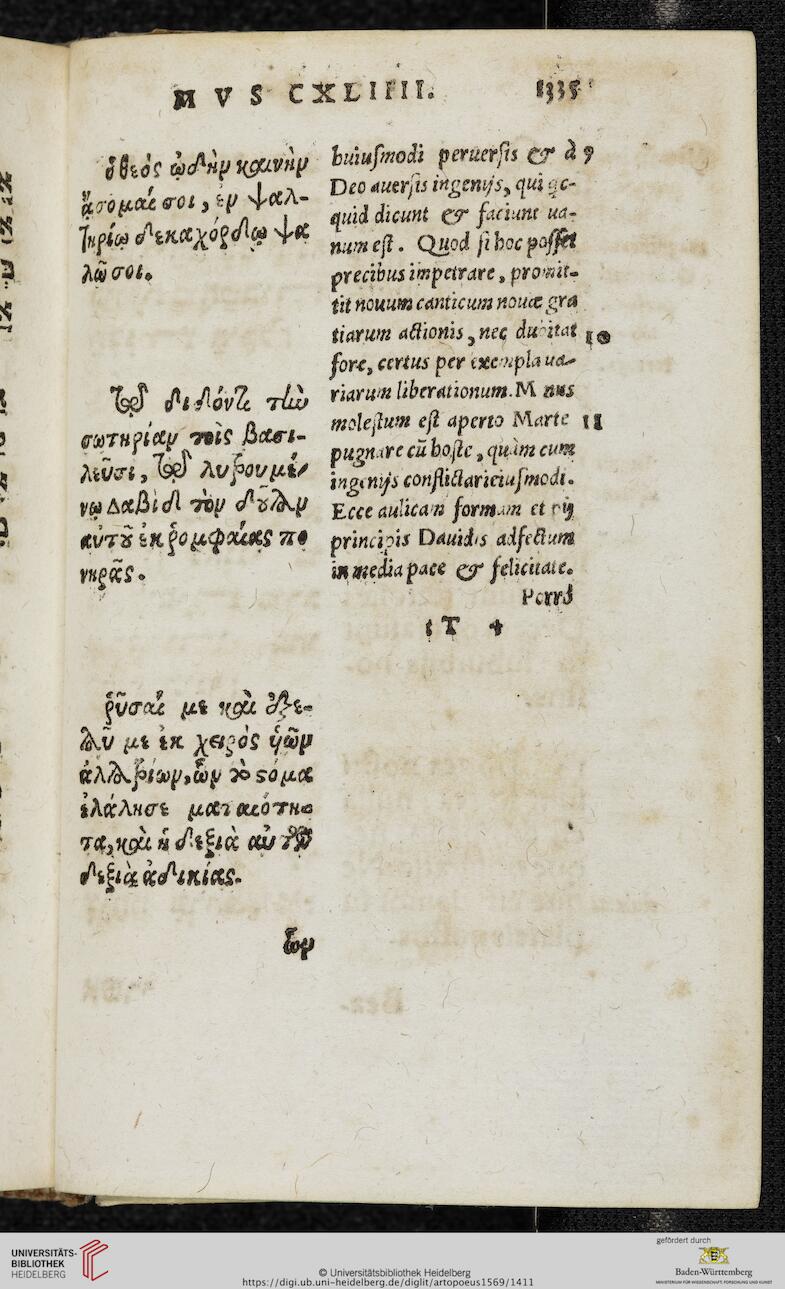 MVS CXLIIII. 1335
ὁ θεὸς ᾠδὴν καινὴν
ᾄσομαί σοι, ἐν ψαλ-
τηρίῳ δεκαχόρδῳ ψα
λῶ σοι.
τῷ διδόντι τὴν
σωτηρίαν τοῖς βασι-
λεῦσι, τῷ λυτρουμέ-
νῳ Δαβὶδ τὸν δοῦλον
αὐτοῦ ἐκ ῥομφαίας πο
νηρᾶς.
ῥῦσαί με καὶ ἐξε-
λοῦ με ἐκ χειρὸς υἱῶν
ἀλλοτρίων, ὧν τὸ στόμα
ἐλάλησε ματαιότη-
τα, καὶ ἡ δεξιὰ αὐτῶν
δεξιὰ ἀδικίας.
ὧν
huiusmodi peruersis & à 9
Deo auersis ingenijs, qui qc-
quid dicunt & faciunt ua-
num est. Quod si hoc posset
precibus impetrare, promit-
tit nouum canticum nouæ gra
tiarum actionis, nec dubitat 10
fore, certus per exempla ua-
riarum liberationum. Minus
molestum est aperto Marte 11
pugnare cū hoste, quàm cum
ingenijs conflictari eiusmodi.
Ecce aulicam formam et pij
principis Dauidis adfectum
in media pace & felicitate.
Porrò
t T 4
UNIVERSITÄTS-
BIBLIOTHEK
HEIDELBERG
© Universitätsbibliothek Heidelberg
https://digi.ub.uni-heidelberg.de/diglit/artopoeus1569/1411
gefördert durch
Baden-Württemberg
MINISTERIUM FÜR WISSENSCHAFT, FORSCHUNG UND KUNST